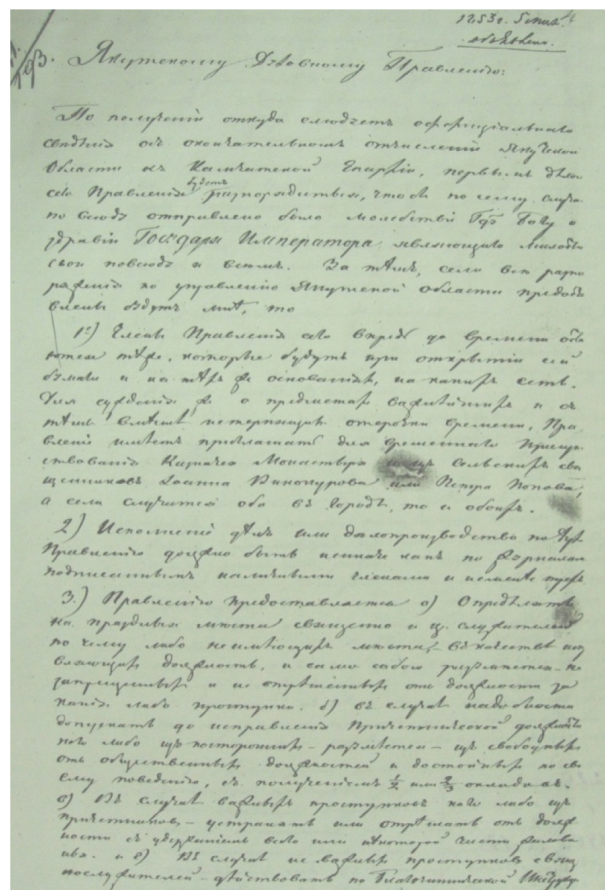 1853 г. Генв.
193.
Якутскому Духовному Правленію:
По полученіи откуда слѣдуетъ оффиціальнаго
свѣдѣнія объ окончательномъ отчисленіи Якутской
Области къ Камчатской Епархіи, первымъ дѣломъ
сего Правленія будетъ распорядиться, чтобы по сему случаю
по всюду отправлено было молебствіе Богу о
здравіи Государя Императора, являющаго милобы
свои повсюду и всѣмъ. За тѣмъ, если все распо
ряженія по управленію Якутской области предоста
влены будутъ мнѣ, то
1е) Члены Правленія сего впредь до времени
тѣже, которые будутъ при открытіи сей
бумаги и на тѣхъ же основаніяхъ, на какихъ есть.
Для сужденія же о предметахъ важнѣйшихъ и съ
тѣмъ вмѣстѣ нетерпящихъ отсрочки времени, Пра
вленіе имѣетъ приглашать для временнаго присут
ствованія Казначея Монастыря Сельскихъ свя
щенниковъ Іоанна Винокурова или Петра Попова,
а если случится оба въ городѣ, то и обоихъ.
2) Исполненіе дѣлъ или дѣлопроизводство по
Правленію должно быть неиначе какъ по журналамъ
подписаннымъ наличными членами и неменѣе трехъ
3.) Правленію предоставляется а) Опредѣлять
на праздныя мѣста священно и ц. служителей
по чему либо неимѣющихъ мѣста, въ качествѣ
должность, и само собою разумѣется не
запрещенныхъ и не отрѣшенныхъ отъ должности за
какія либо проступки. б) въ случаѣ надобности
допускать до исправленія Причетнической должности
кого либо изъ постороннихъ – разумѣется – изъ свободныхъ
отъ общественныхъ должностей и достойныхъ по сво
ему поведенію, съ полученіемъ ½ или ⅔ оклада.
в) Въ случаѣ важныхъ проступковъ кого либо изъ
причетниковъ – устранять или отрѣшать отъ долж
ности съ удержаніемъ всего или нѣкоторой части жалова
нья. и г) Въ случаѣ не важныхъ проступковъ свящ
послужителей – дѣйствовать по Благочиннической